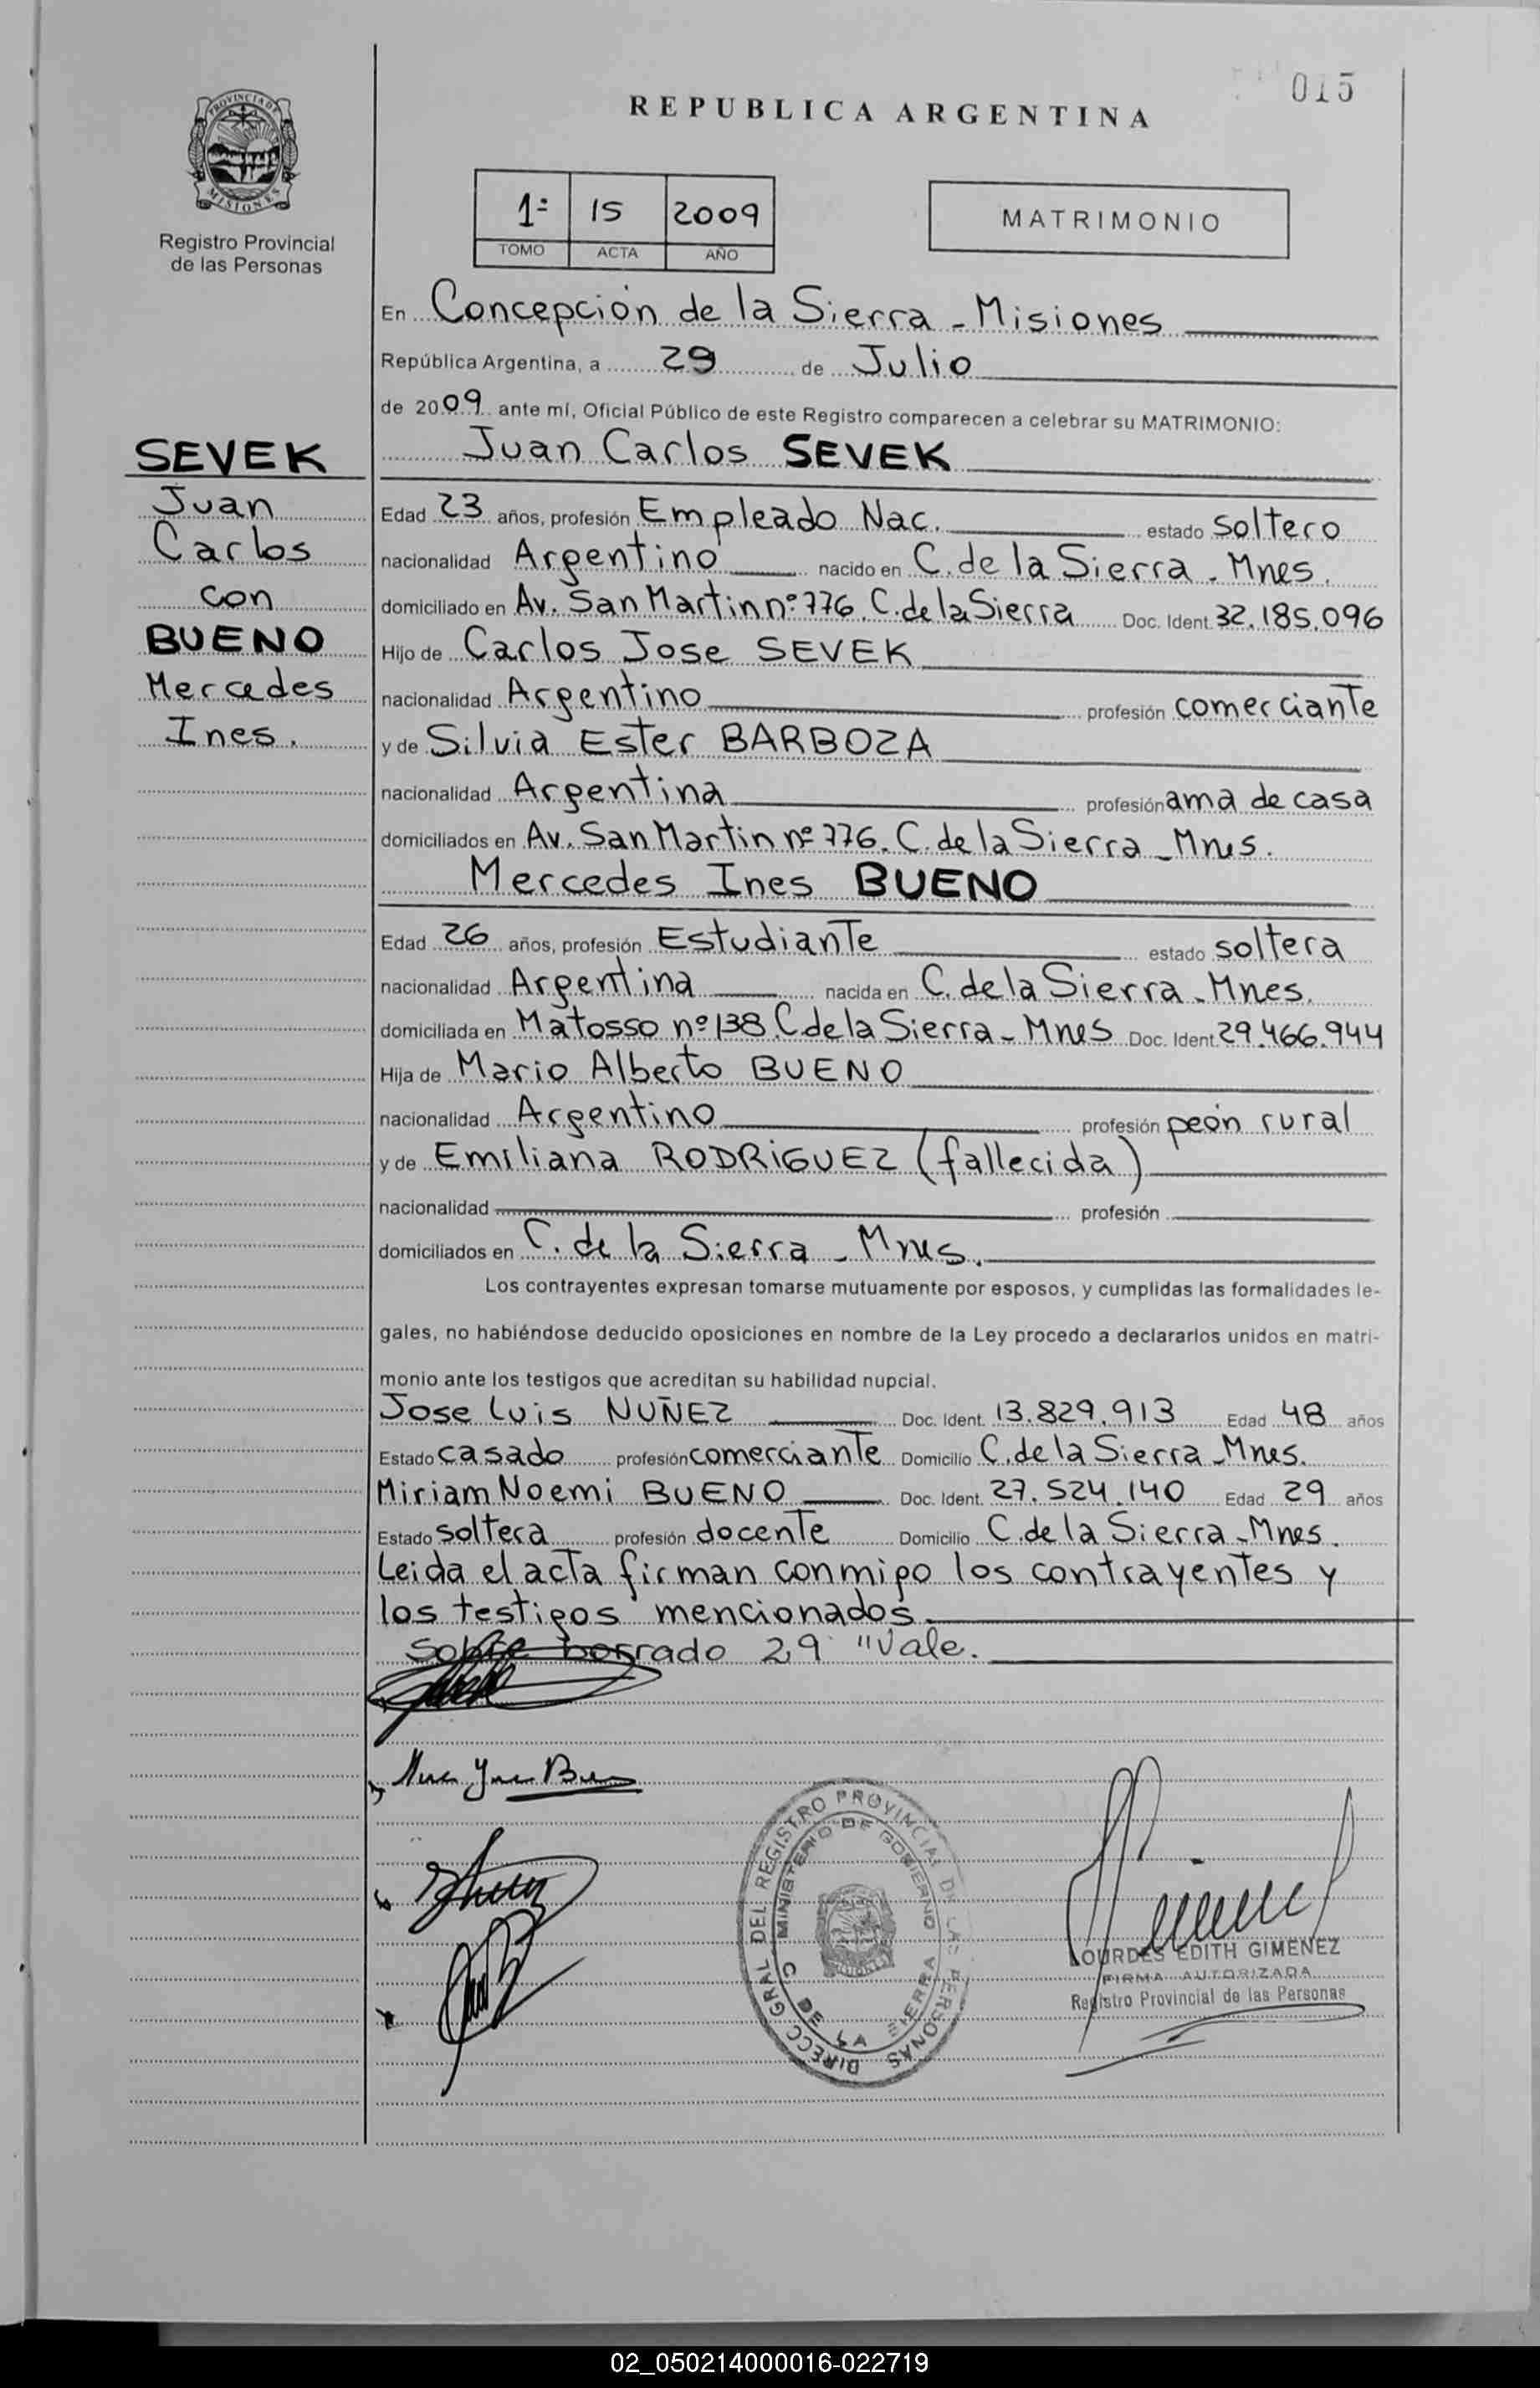 015
REPUBLICA ARGENTINA
PROVINCIA DE
MISIONES
Registro Provincial
de las Personas
1ª 15 2009
TOMO ACTA AÑO
MATRIMONIO
En Concepción de la Sierra - Misiones
República Argentina, a 29 de Julio
de 2009 ante mí, Oficial Público de este Registro comparecen a celebrar su MATRIMONIO:
SEVEK
Juan
Carlos
con
BUENO
Mercedes
Ines.
Juan Carlos SEVEK
Edad 23 años, profesión Empleado Nac. estado soltero
nacionalidad Argentino nacido en C. de la Sierra - Mnes.
domiciliado en Av. San Martin nº 776. C. de la Sierra Doc. Ident. 32.185.096
Hijo de Carlos Jose SEVEK
nacionalidad Argentino profesión comerciante
y de Silvia Ester BARBOZA
nacionalidad Argentina profesión ama de casa
domiciliados en Av. San Martin nº 776. C. de la Sierra - Mnes.
Mercedes Ines BUENO
Edad 26 años, profesión Estudiante estado soltera
nacionalidad Argentina nacida en C. de la Sierra - Mnes.
domiciliada en Matosso nº 138 C. de la Sierra - Mnes Doc. Ident. 29.466.944
Hija de Mario Alberto BUENO
nacionalidad Argentino profesión peón rural
y de Emiliana RODRIGUEZ (fallecida)
nacionalidad profesión
domiciliados en C. de la Sierra - Mnes.
Los contrayentes expresan tomarse mutuamente por esposos, y cumplidas las formalidades le-
gales, no habiéndose deducido oposiciones en nombre de la Ley procedo a declararlos unidos en matri-
monio ante los testigos que acreditan su habilidad nupcial.
Jose Luis NUÑEZ Doc. Ident. 13.829.913 Edad 48 años
Estado casado profesión comerciante Domicilio C. de la Sierra - Mnes.
Miriam Noemi BUENO Doc. Ident. 27.524.140 Edad 29 años
Estado soltera profesión docente Domicilio C. de la Sierra - Mnes.
Leida el acta firman conmigo los contrayentes y
los testigos mencionados.
Sobre borrado 29 "Vale.
DIRECC GRAL DEL REGISTRO PROVINCIAL DE LAS PERSONAS
MINISTERIO DE GOBIERNO
C DE LA SIERRA
LOURDES EDITH GIMENEZ
FIRMA AUTORIZADA
Registro Provincial de las Personas
02_050214000016-022719